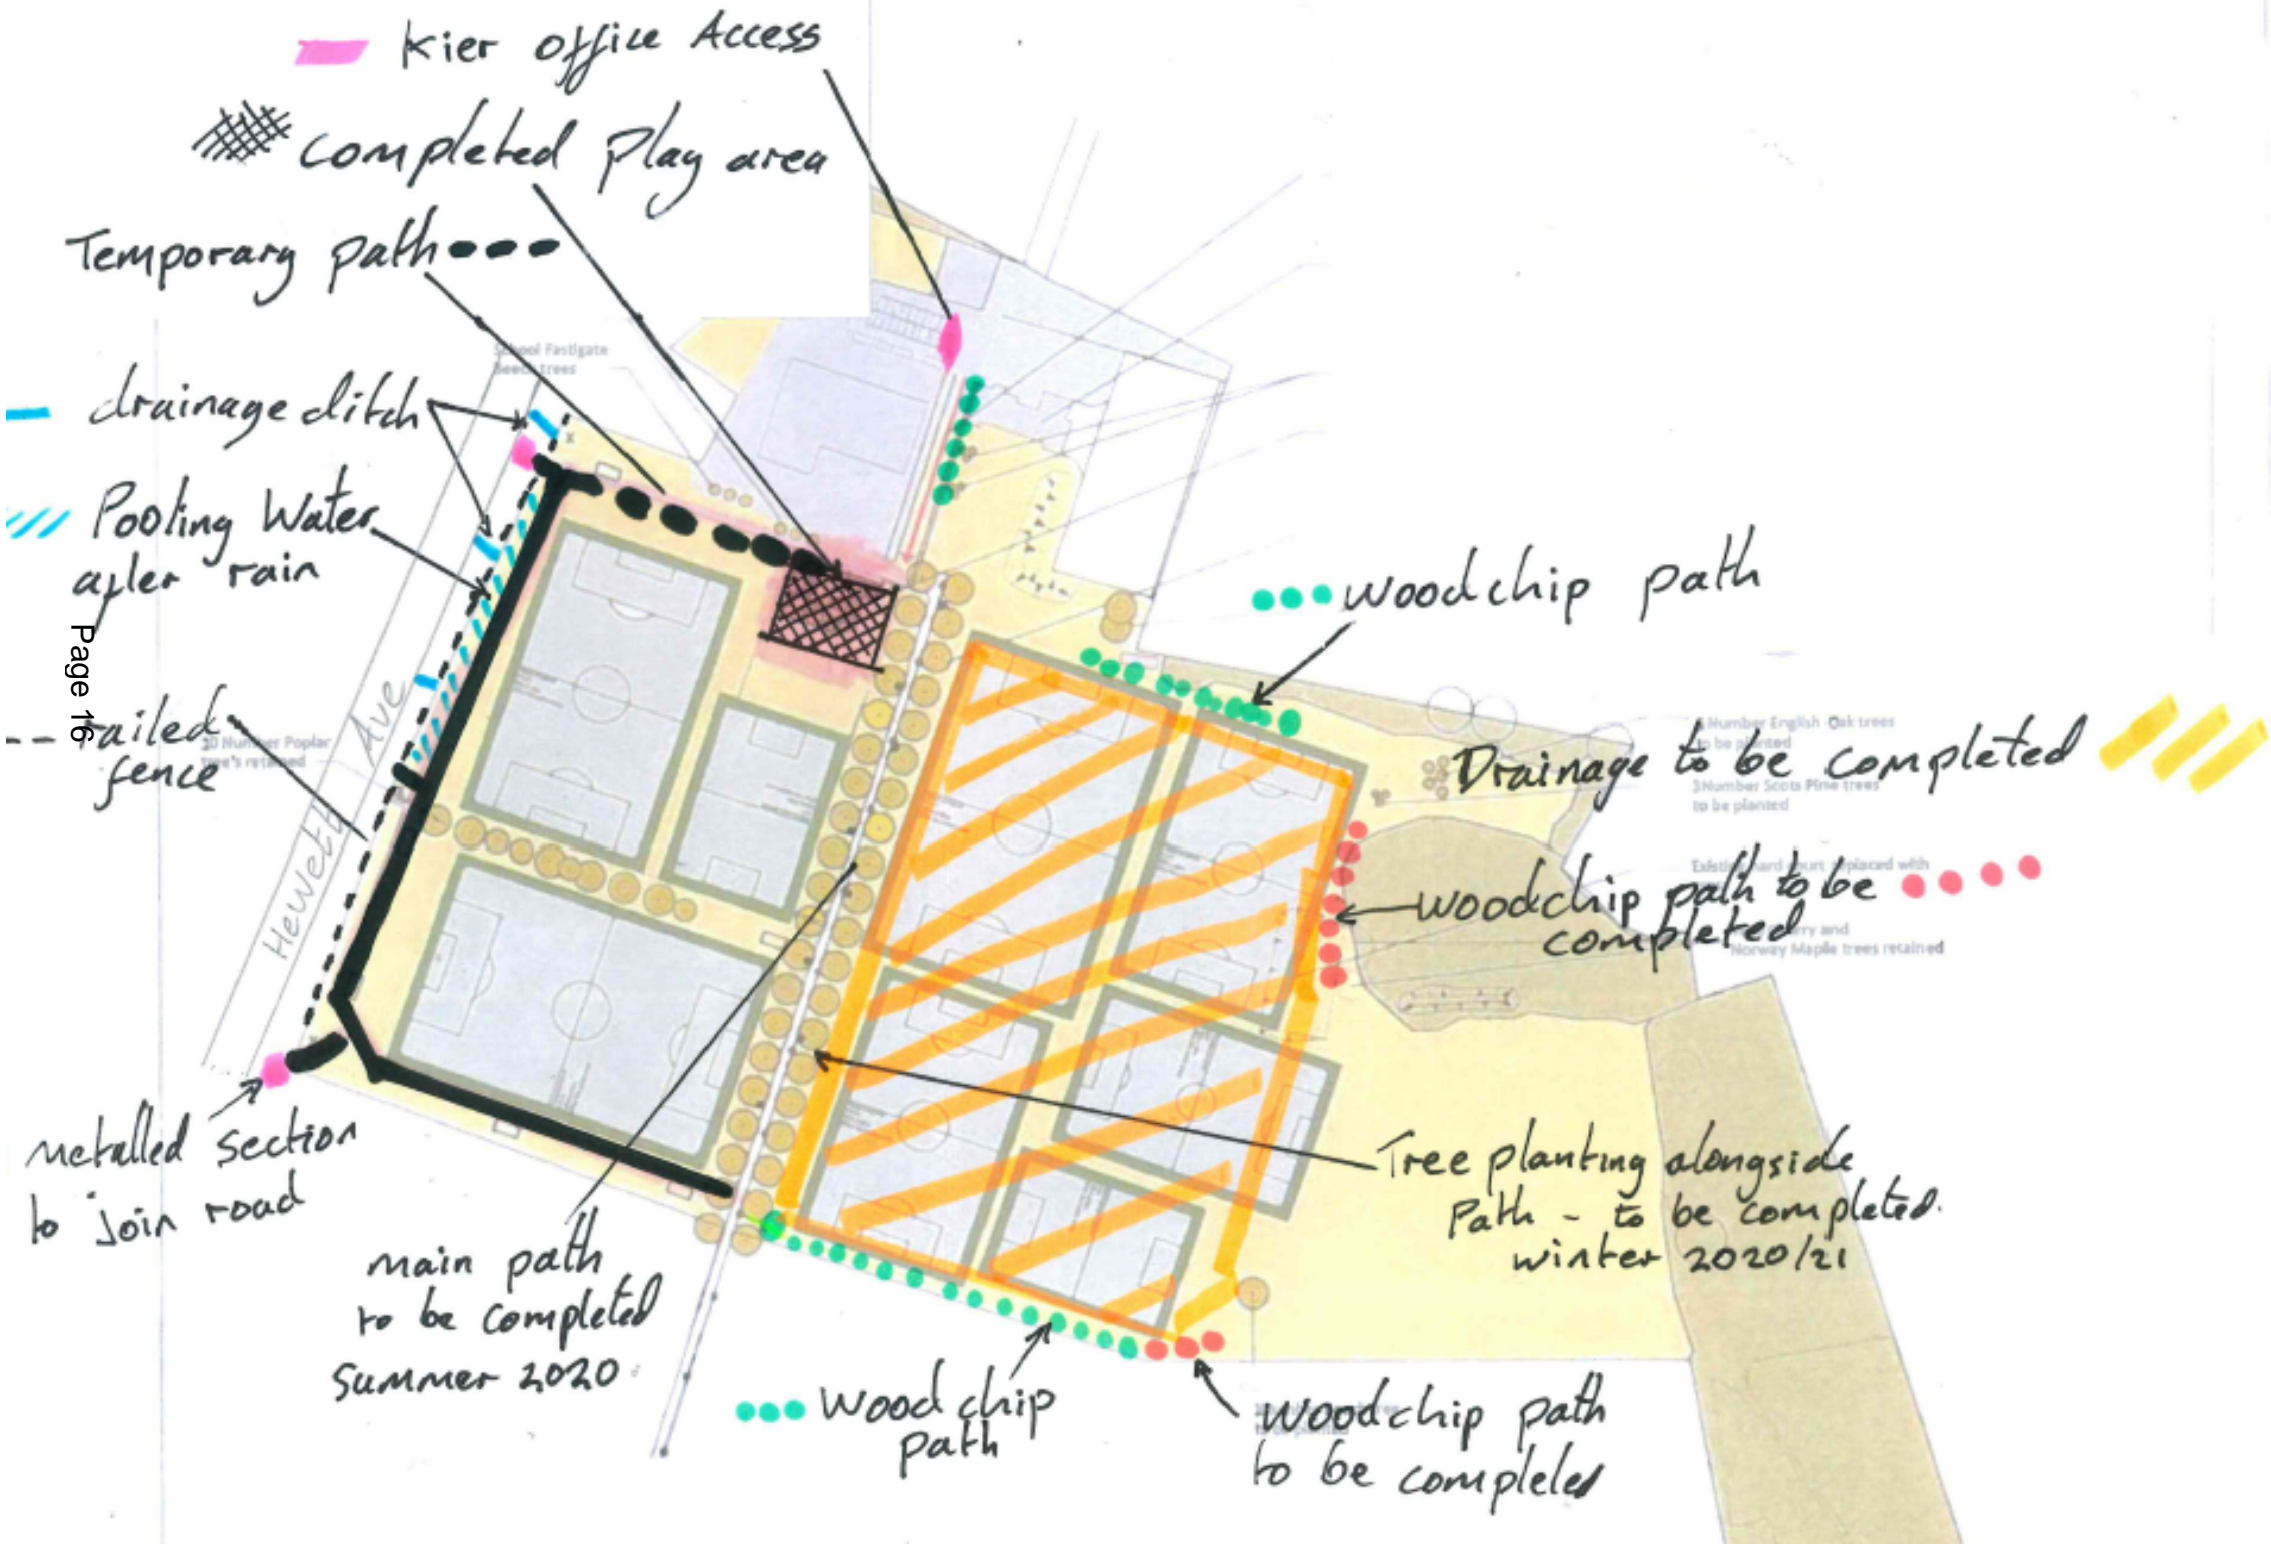 Kier office Access
completed play area
Temporary path
School Fastigate
Beech trees
drainage ditch
Pooling Water
after rain
Page 16
railed
fence
Number Poplar
tree's retained
Hewett Ave
woodchip path
Number English Oak trees
to be planted
Drainage to be completed
3 Number Scots Pine trees
to be planted
Existing hard court replaced with
woodchip path to be
completed
and
Norway Maple trees retained
metalled section
to join road
main path
to be completed
Summer 2020
Tree planting alongside
Path - to be completed.
winter 2020/21
wood chip
path
woodchip path
to be completed